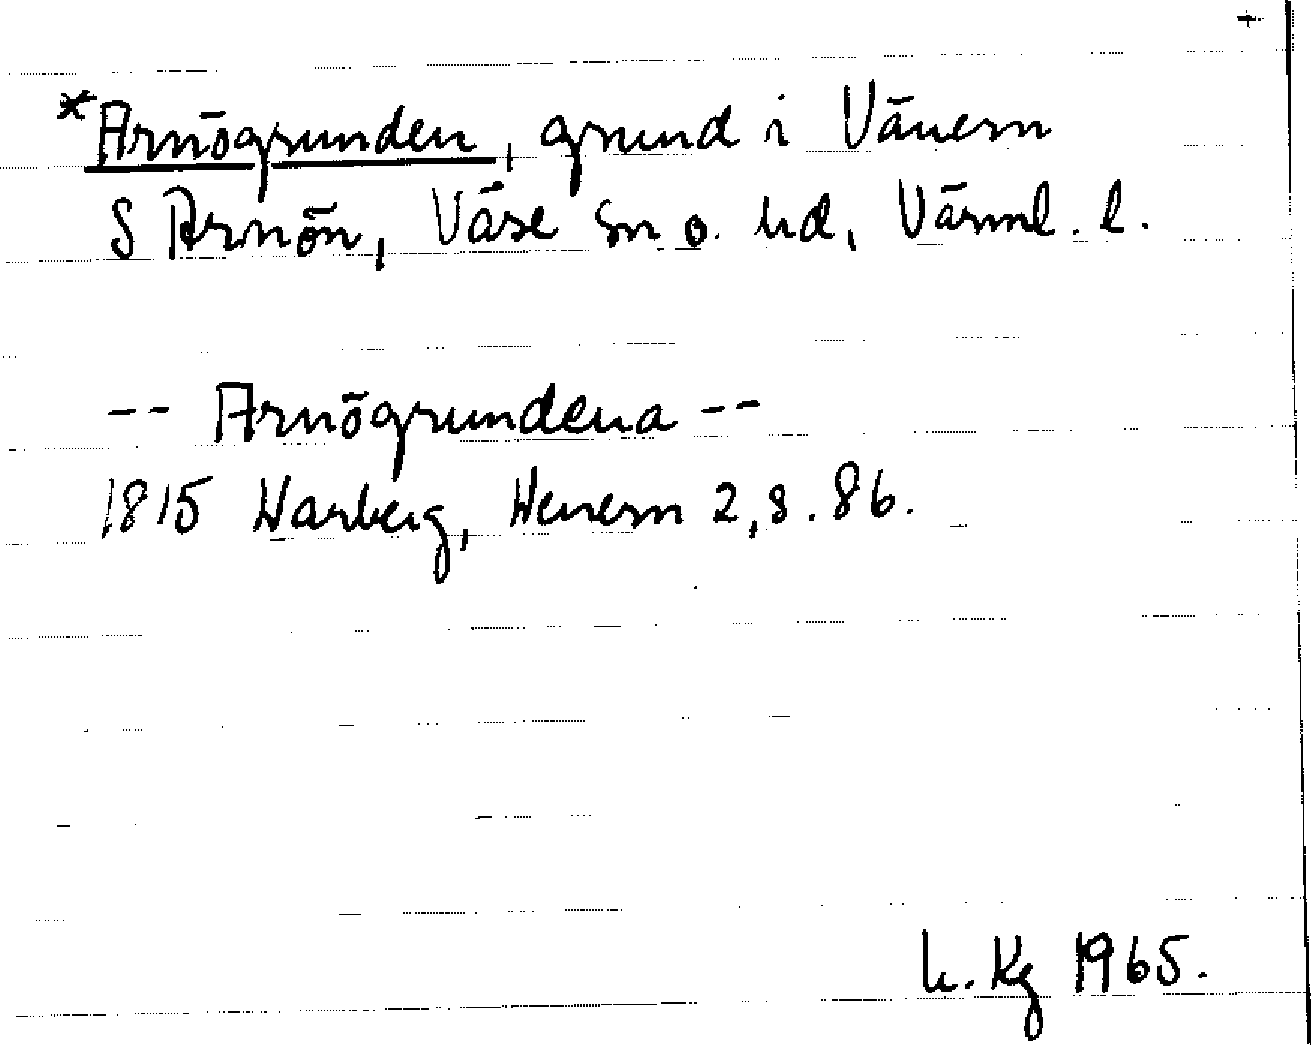 +
*Arnögrunden, grund i Vänern
S Arnön, Väse sn o. hd, Värml. l.
-- Arnögrundena --
1815 Warberg, Wenern 2, s. 86.
L. Kg 1965.